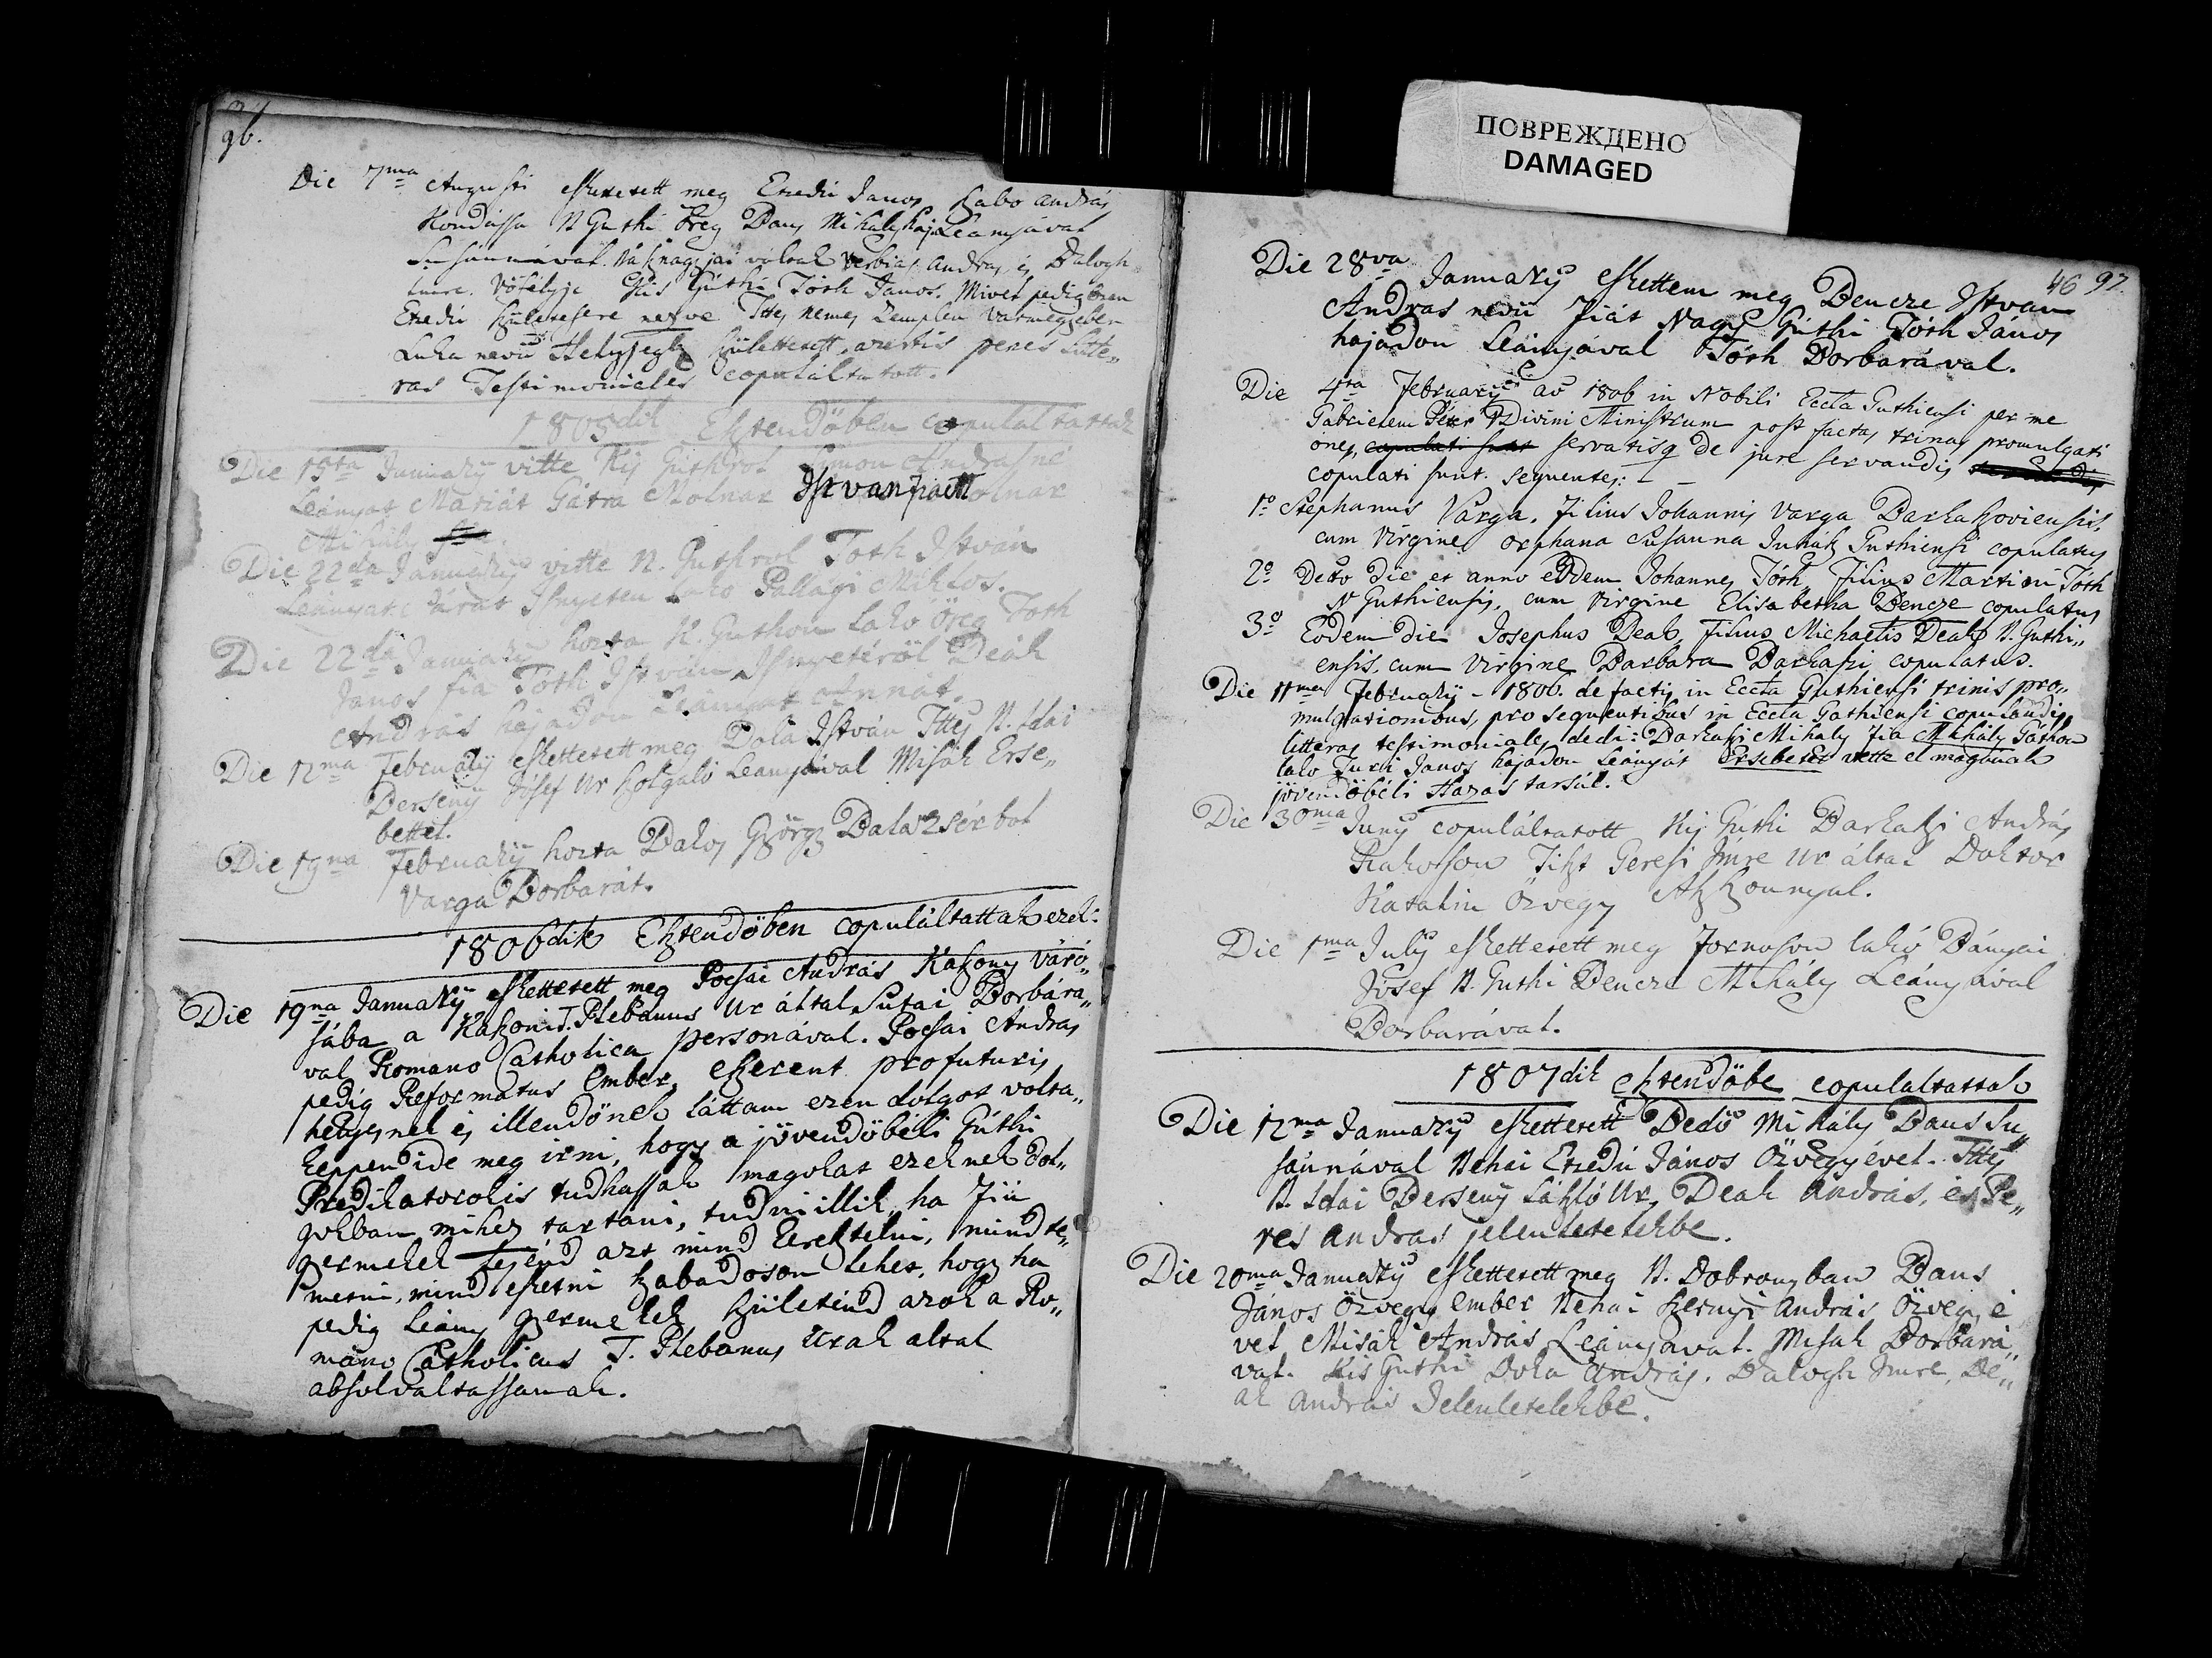 96.
Die 7ma Augusti esketett meg Ezedü Janos Szabo András
Kondássa N Guthi Öreg Dany Mihaly haja Leanyával
Susánnával. Násznagyjai voltak Verbias Andras és Balogh
Imre. Vőfélyje Kis Gúthi Tóth Janos. Mivel pedig ezen
Ezedü születésére nézve Ttes Nemes Zemplén Varmegyében
Luka nevü Helységb születtetett, azértis penes Litte„
ras Testimoniales copuláltatott.
1805dik Esztendöben copulaltattak
Die 15ta Januarÿ vitte Kis Guthrol Simon Andrásné
Leányat Mariát Gátra Molnar Istvan fia Molnar
Mihály
Die 22da Januarÿ vitte N. Guthrol Toth István
Leányat Sárat Isnyeten lako Pallagi Miklos.
Die 22da Januarÿ hozta N. Guthon lako Öreg Toth
Janos fia Tóth István Isnyetéröl Deák
András hajadon Leányat Annát.
Die 12ma Februarÿ eskettetett meg Dola István Ttes N. Idai
Dersenÿ Jósef Ur szolgálo Leanyával Misák Erse„
bettel.
Die 19na Februarÿ hozta Dakos György Balazsérbol
Varga Borbarát.
1806dik Esztendöben copuláltattak ezek:
Die 19na Januarÿ eskettetett meg Pocsai András Kaszony váró„
sába a Kaszoni T. Plebanus Ur által Sutai Borbára„
val Romano Catholica personával. Pocsai Andras
pedig Reformatus Ember, eszerent profuturis
helyesnek és illendönek láttam ezen dolgot volta„
keppen ide meg irni, hogy a jövendöbéli Gúthi
Predikatorokis tudhassák magokat ezeknek dol„
gokban mihez tartani, tudniillik, ha Fiú
germekek lejénd azt mind keresztelni, mind te„
metni, mind esketni szabadoson lehet, hogy ha
pedig Leány germekek születénd azok a Ro„
mano Catholicus T. Plebanus Urak altal
absolváltassanak.
46 97.
Die 28va Januarÿ eskettem meg Bencze Istvan
Andras nevü fiát Nagy Gúthi Tóth János
hajadon Leányával Tóth Borbarával.
Die 4ta Februarÿ aō 1806 in Nobili Eccla Guthiensi per me
Gabrielem Péter V Divini Ministrum post factas trinas promulgati
ones, copulati sunt servatisq de jure servandis servandis
copulati sunt. sequentes: _ _
1º Stephanus Varga, Filius Johannis Varga Barkaszoviensis,
cum Virgine orphana Susanna Juhász Guthiensi copulatus
2º Detto Die et anno eodem Johannes Tóth, Filius Martini Tóth
N Guthiensis, cum Virgine Elisabetha Bencze copulatus
3º Eodem die Josephus Deak, Filius Michaelis Deak N. Guthi„
ensis, cum Virgine Barbara Barkaszi copulatus.
Die 11ma Februarÿ - 1806. de factis in Eccla Guthiensi trinis pro„
mulgationibus, pro sequentibus in Eccla Gathiensi copulandis
litteras testimoniales dedi: Barkaszi Mihaly fia Mihály Gáthon
lako Turi Janos hajadon leányát Ersebetet vette el magának
jövendöbéli Házas társúl.
Die 30ma Junÿ copuláltatott Kis Gúthi Barkatzi András
Rakoson Titzt Geresi Imre Ur által Doktor
Katalin Özvegy Aszszonnyal.
Die 1ma Julÿ eskettetett meg Fornoson lakó Bányai
Jósef N. Guthi Bencze Mihály Leányával
Borbarával.
1807dik esztendöbe copulaltattak
Die 12ma Januarÿ eskettetett Dedö Mihály Dans Su„
sánnával Néhai Ezedü János Özvegyével. Ttes
N. Idai Dersenÿ László Ur, Deak András, és Pe„
res Andras jelenletelekbe.
Die 20ma Januarÿ eskettetett meg N. Dobronyban Dans
János Özvegy ember Nehai Szernyi András Özvegyé
vel Misák András Leányával. Misak Borbará„
val. Kis Guthi Dola András. Balogh Imre, De„
ak András Jelenletelekbe.
ПОВРЕЖДЕНО
DAMAGED